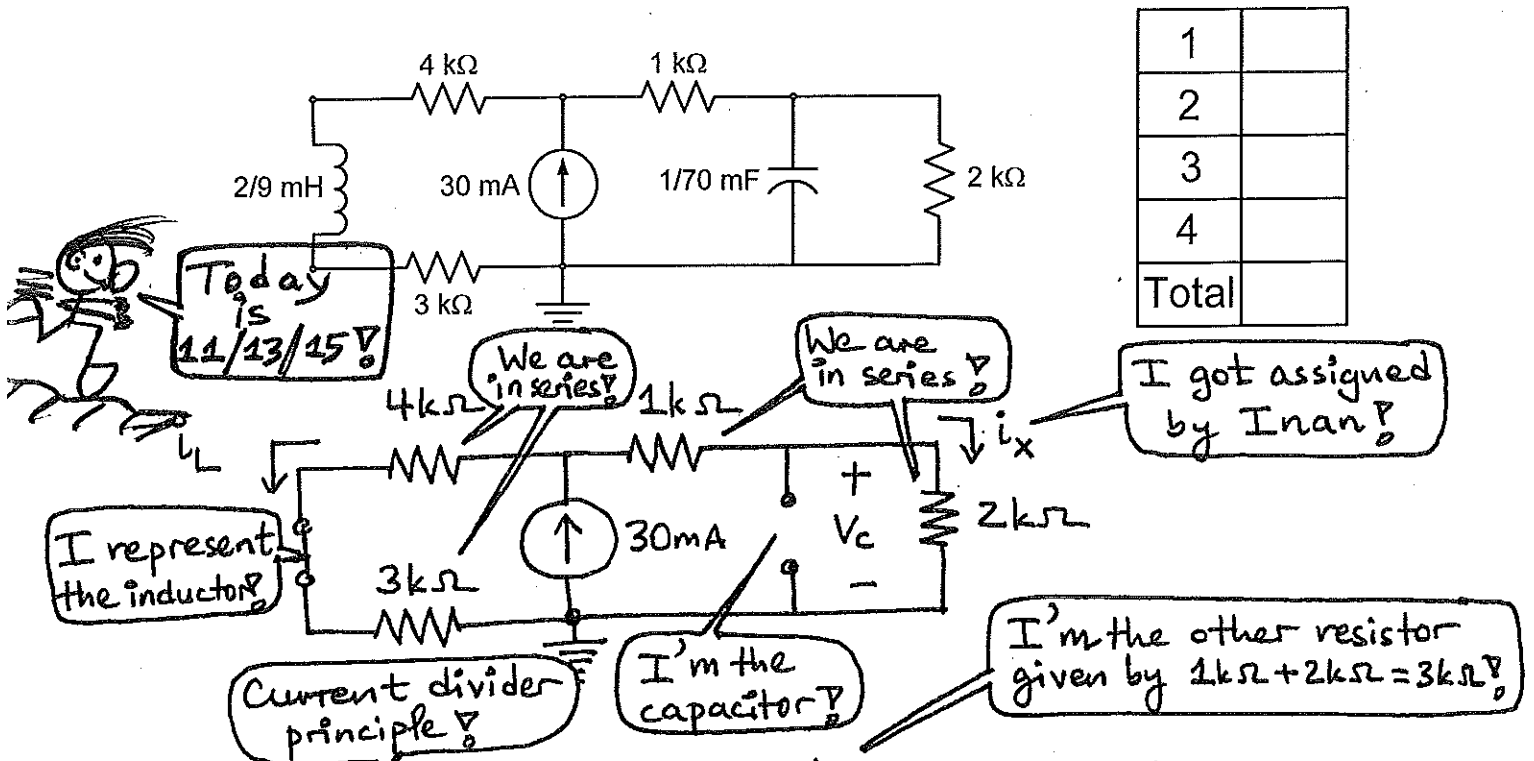 4 kΩ
1 kΩ
2/9 mH
30 mA
1/70 mF
2 kΩ
3 kΩ
1
2
3
4
Total
Today
is
11/13/15!
We are
in series!
We are
in series!
I got assigned
by Inan!
4kΩ
1kΩ
iL
ix
I represent
the inductor!
30mA
+
Vc
−
2kΩ
3kΩ
Current divider
principle!
I'm the
capacitor!
I'm the other resistor
given by 1kΩ+2kΩ=3kΩ!